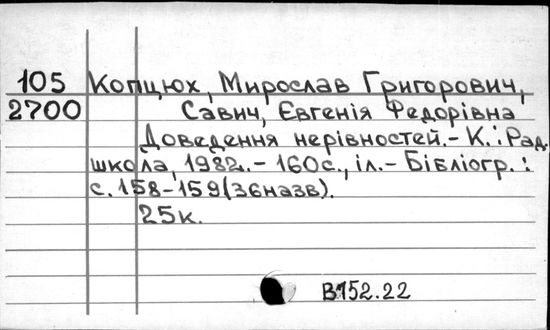 105 Копцюх, Мирослав Григорович,
2700 Савич, Євгенія Федорівна
Доведення нерівностей.- К.: Рад.
школа, 1982.- 160с., іл.- Бібліогр.:
с. 158-159(36назв).
25к.
В152.22